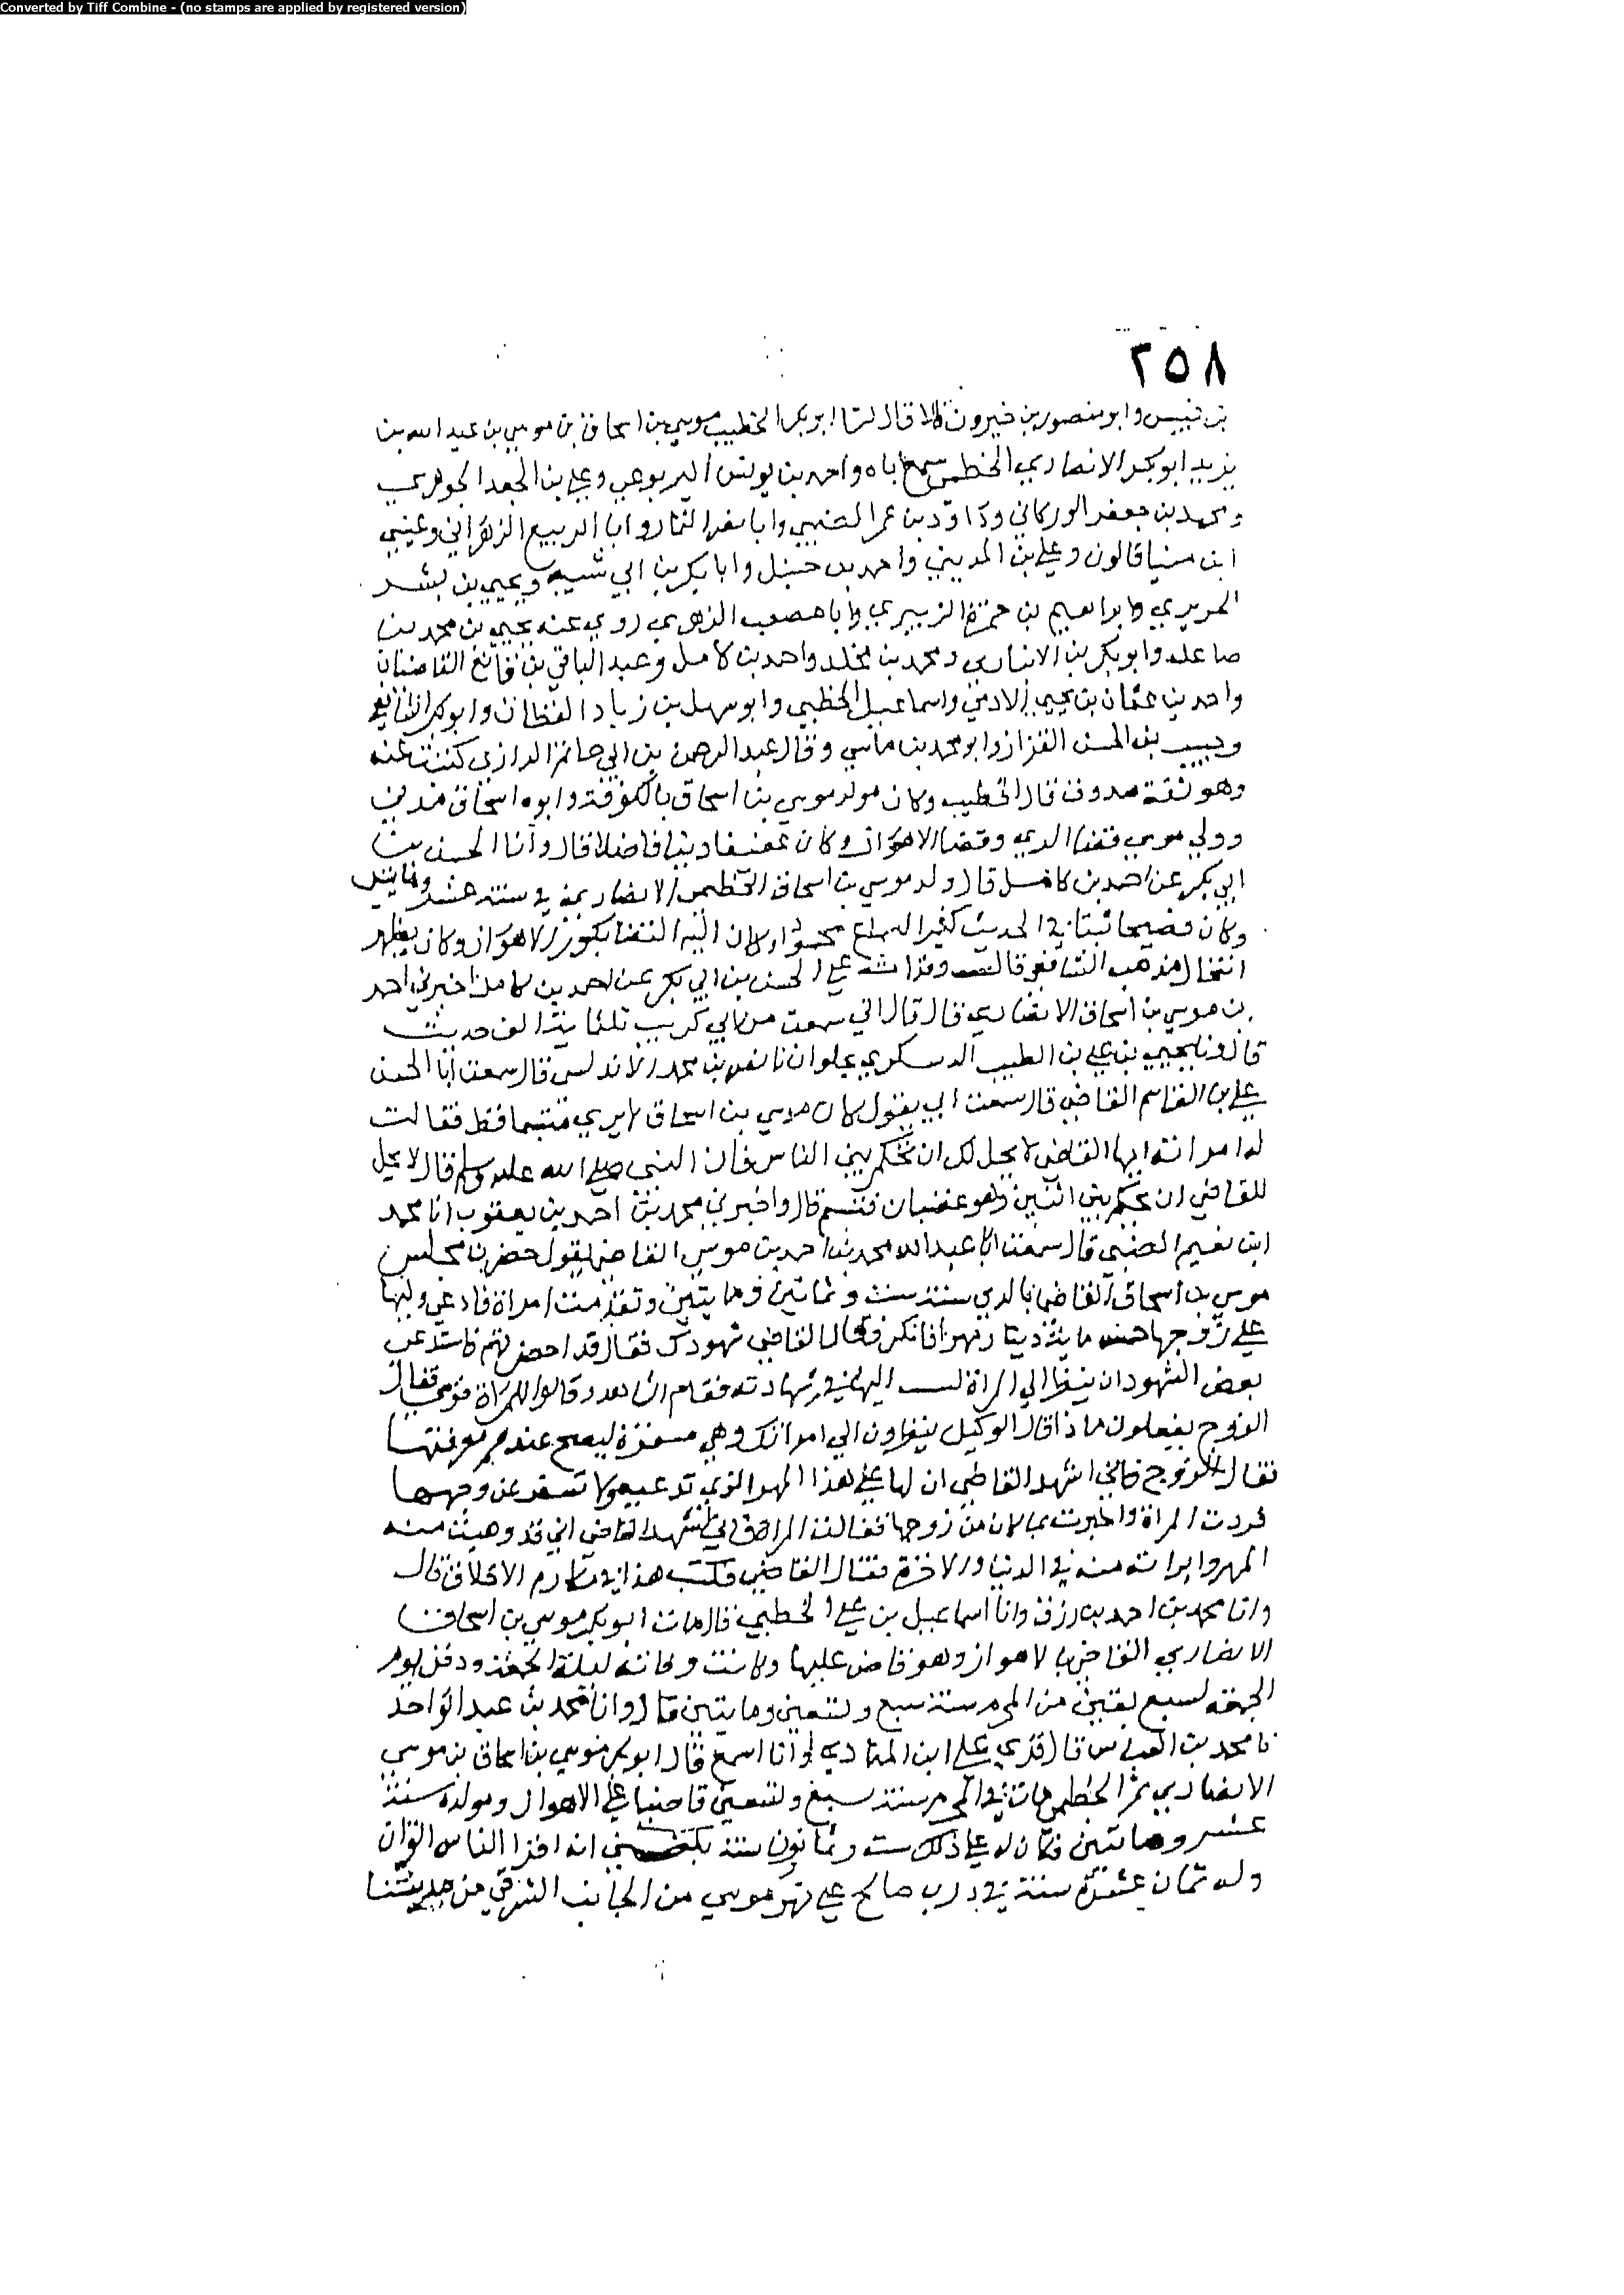 Converted by Tiff Combine - (no stamps are applied by registered version)
٢٥٨
بن قبيس وابو منصور بن خيرون قالا قال لنا ابو بكر الخطيب موسي بن اسحاق بن موسي بن عبد الله بن
يزيد ابو بكر الانصاري الخطمي سمع اباه واحمد بن يونس اليربوعي وعلي بن الجعد الجوهري
ومحمد بن جعفر الوركاني وداود بن عمر الضبي وابا نصر التمار وابا الربيع الزهراني وعيسي
ابن مينا قالون وعلي بن المديني واحمد بن حنبل وابا بكر بن ابي شيبه ويحيي بن بشر
الحريري وابراهيم بن حمزة الزبيري وابا مصعب الزهري روي عنه يحيي بن محمد بن
صاعد وابو بكر بن الانباري ومحمد بن مخلد واحمد بن كامل وعبد الباقي بن قانع القاضيان
واحمد بن عثمان بن يحيي الادمي واسماعيل الخطبي وابو سهل بن زياد القطان وابو بكر الشافعي
وحبيب بن الحسن القزاز وابو محمد بن ماسي وقال عبد الرحمن بن ابي حاتم الرازي كتبت عنه
وهو ثقة صدوق قال الخطيب وكان مولد موسي بن اسحاق بالكوفة وابوه اسحاق مديني
وولي موسي قضا الري وقضا الاهواز وكان عفيفا دينا فاضلا قال وأنا الحسن بن
ابي بكر عن احمد بن كامل قال ولد موسي بن اسحاق الخطمي الانصاري في سنة عشر ومايتين
وكان فصيحا ثبتا في الحديث كثير السماع محمودا وكان اليه القضا بكور الاهواز وكان يظهر
انتحال مذهب الشافعي قال وقرات علي الحسن بن ابي بكر عن احمد بن كامل اخبرني احمد
بن موسي بن اسحاق الانصاري قال قال ابي سمعت من ابي كريب ثلثمايئة الف حديث
قال ونا يحيي بن علي بن الطيب الدسكري بحلوان نا نصر بن محمد الاندلسي قال سمعت ابا الحسن
علي بن القاسم القاضي قال سمعت ابي يقول كان موسي بن اسحاق لا يري متبسما قط فقالت
له امراته ايها القاضي لا يحل لك ان تحكم بين الناس فان النبي صلي الله عليه وسلم قال لا يحل
للقاضي ان يحكم بين اثنين وهو غضبان فتبسم قال واخبرني محمد بن احمد بن يعقوب انا محمد
ابن نعيم الضبي قال سمعت ابا عبد الله محمد بن احمد بن موسي القاضي يقول حضرت مجلس
موسي بن اسحاق القاضي بالري سنة ست وثمانين ومايتين وتقدمت امراة فادعي وليها
علي زوجها خمس مايئة دينار مهرا فانكر فقال القاضي شهودك فقال قد احضرتهم فاستدعي
بعض الشهود ان ينظر الي المراة ليشير اليها في شهادته فقام الشاهد وقالوا للمراة قومي فقال
الزوج يفعلون ماذا قال الوكيل ينظرون الي امراتك وهي مسفرة ليصح عندهم معرفتها
فقال الزوج فاني اشهد القاضي ان لها علي هذا المهر الذي تدعيه ولا تسفر عن وجهها
فردت المراة واخبرت بما كان من زوجها فقالت المراة فاني اشهد القاضي اني قد وهبت منه
المهر وابراته منه في الدنيا والاخرة فقال القاضي يكتب هذا في مكارم الاخلاق قال
وانا محمد بن احمد بن رزق وانا اسماعيل بن علي الخطبي قال مات ابو بكر موسي بن اسحاق
الانصاري القاضي بالاهواز وهو قاض عليها وكانت وفاته ليلة الجمعة ودفن يوم
الجمعه لسبع بقين من المحرم سنة سبع وتسعين ومايتين قال وانا محمد بن عبد الواحد
نا محمد بن العباس قال قري علي ابن المنادي وانا اسمع قال ابو بكر موسي بن اسحاق بن موسي
الانصاري ثم الخطمي مات في المحرم سنة سبع وتسعين قاضيا علي الاهواز ومولده سنة
عشر ومايتين فكان له علي ذلك ست وثمانون سنة بلغني انه اقرا الناس القران
وله ثمان عشرة سنة في درب صالح علي نهر موسي من الجانب الشرقي من مدينتنا